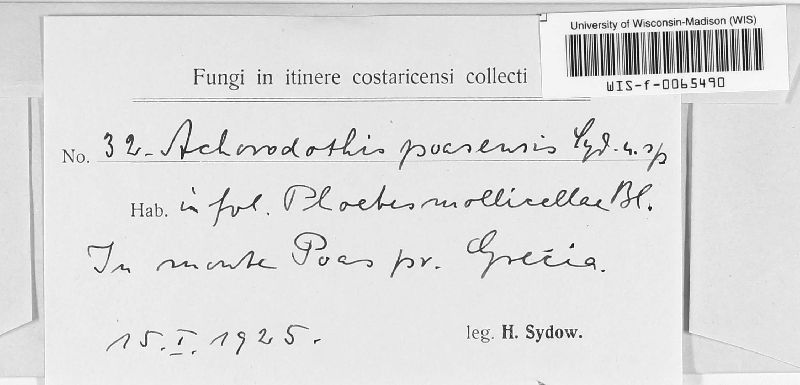 University of Wisconsin-Madison (WIS)
WIS-f-0065490
Fungi in itinere costaricensi collecti
No. 32. Achorodothis poasensis Syd. n. sp
Hab. in fol. Phoebes mollicellae Bl.
In monte Poas pr. Grecia.
15. I. 1925.
leg. H. Sydow.